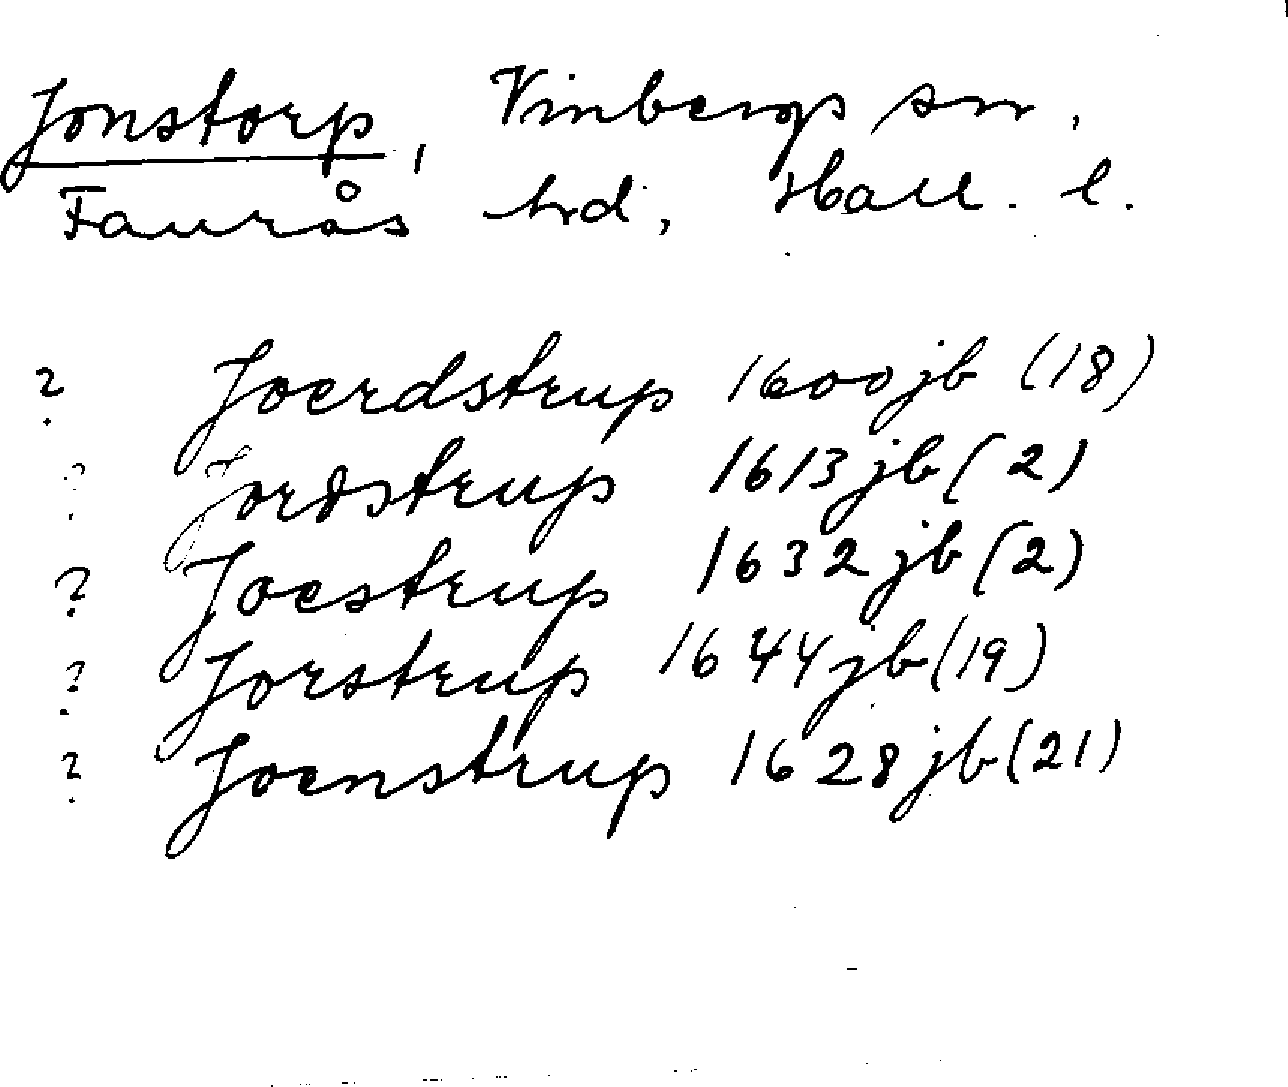 Jonstorp, Vinbergs sn,
Faurås hd, Hall. l.
? Joerdstrup 1600 jb (18)
? Jordstrup 1613 jb (2)
? Joestrup 1632 jb (2)
? Jorstrup 1644 jb (19)
? Joenstrup 1628 jb (21)